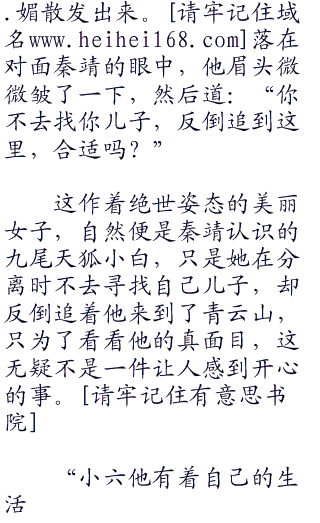 .媚散发出来。[请牢记住域
名www.heihei168.com]落在
对面秦靖的眼中，他眉头微
微皱了一下，然后道：“你
不去找你儿子，反倒追到这
里，合适吗？”
这作着绝世姿态的美丽
女子，自然便是秦靖认识的
九尾天狐小白，只是她在分
离时不去寻找自己儿子，却
反倒追着他来到了青云山，
只为了看看他的真面目，这
无疑不是一件让人感到开心
的事。[请牢记住有意思书
院]
“小六他有着自己的生
活